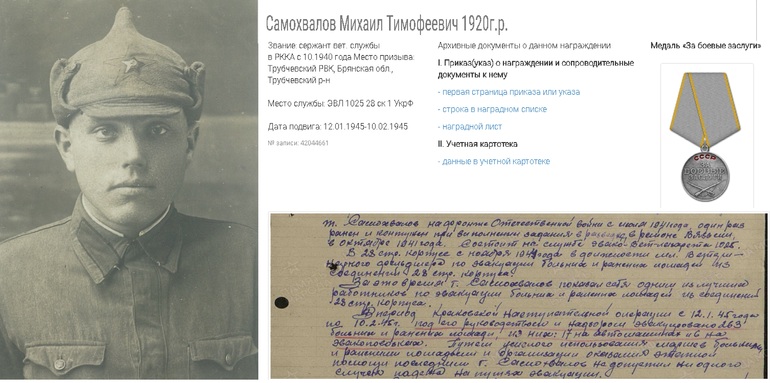 Самохвалов Михаил Тимофеевич 1920г.р.
Звание: сержант вет. службы
в РККА с 10.1940 года Место призыва:
Трубчевский РВК, Брянская обл.,
Трубчевский р-н
Место службы: ЭВЛ 1025 28 ск 1 УкрФ
Дата подвига: 12.01.1945-10.02.1945
№ записи: 42044661
Архивные документы о данном награждении:
I. Приказ(указ) о награждении и сопроводительные
документы к нему
- первая страница приказ или указа
- строка в наградном списке
- наградной лист
II. Учетная картотека
- данные в учетной картотеке
Медаль «За боевые заслуги»
СССР
ЗА
БОЕВЫЕ
ЗАСЛУГИ
т. Самохвалов на фронте Отечественной войны с июля 1941 года, один раз
ранен и контужен при выполнении задания в районе Вязьмы,
в октябре 1941 года. Состоит на службе эвако-ветлазарета 1025.
В 28 стр. корпусе с ноября 1944 года в должности
фельдшера по эвакуации больных и раненых лошадей из
соединений 28 стр. корпуса.
За это время т. Самохвалов показал себя одним из лучших
работников по эвакуации больных и раненых лошадей из соединений
28 стр. корпуса.
В период Краковской наступательной операции с 12.1.45 года
по 10.2.45г. под его руководством и надзором эвакуировано 263
больных и раненых лошади, из них: 17 на автомашинах и на
эвакоповозках. Путем умелого использования
и раненым лошадьми и организации оказания
помощи последним т. Самохвалов не допустил ни одного
случая падежа на путях эвакуации.